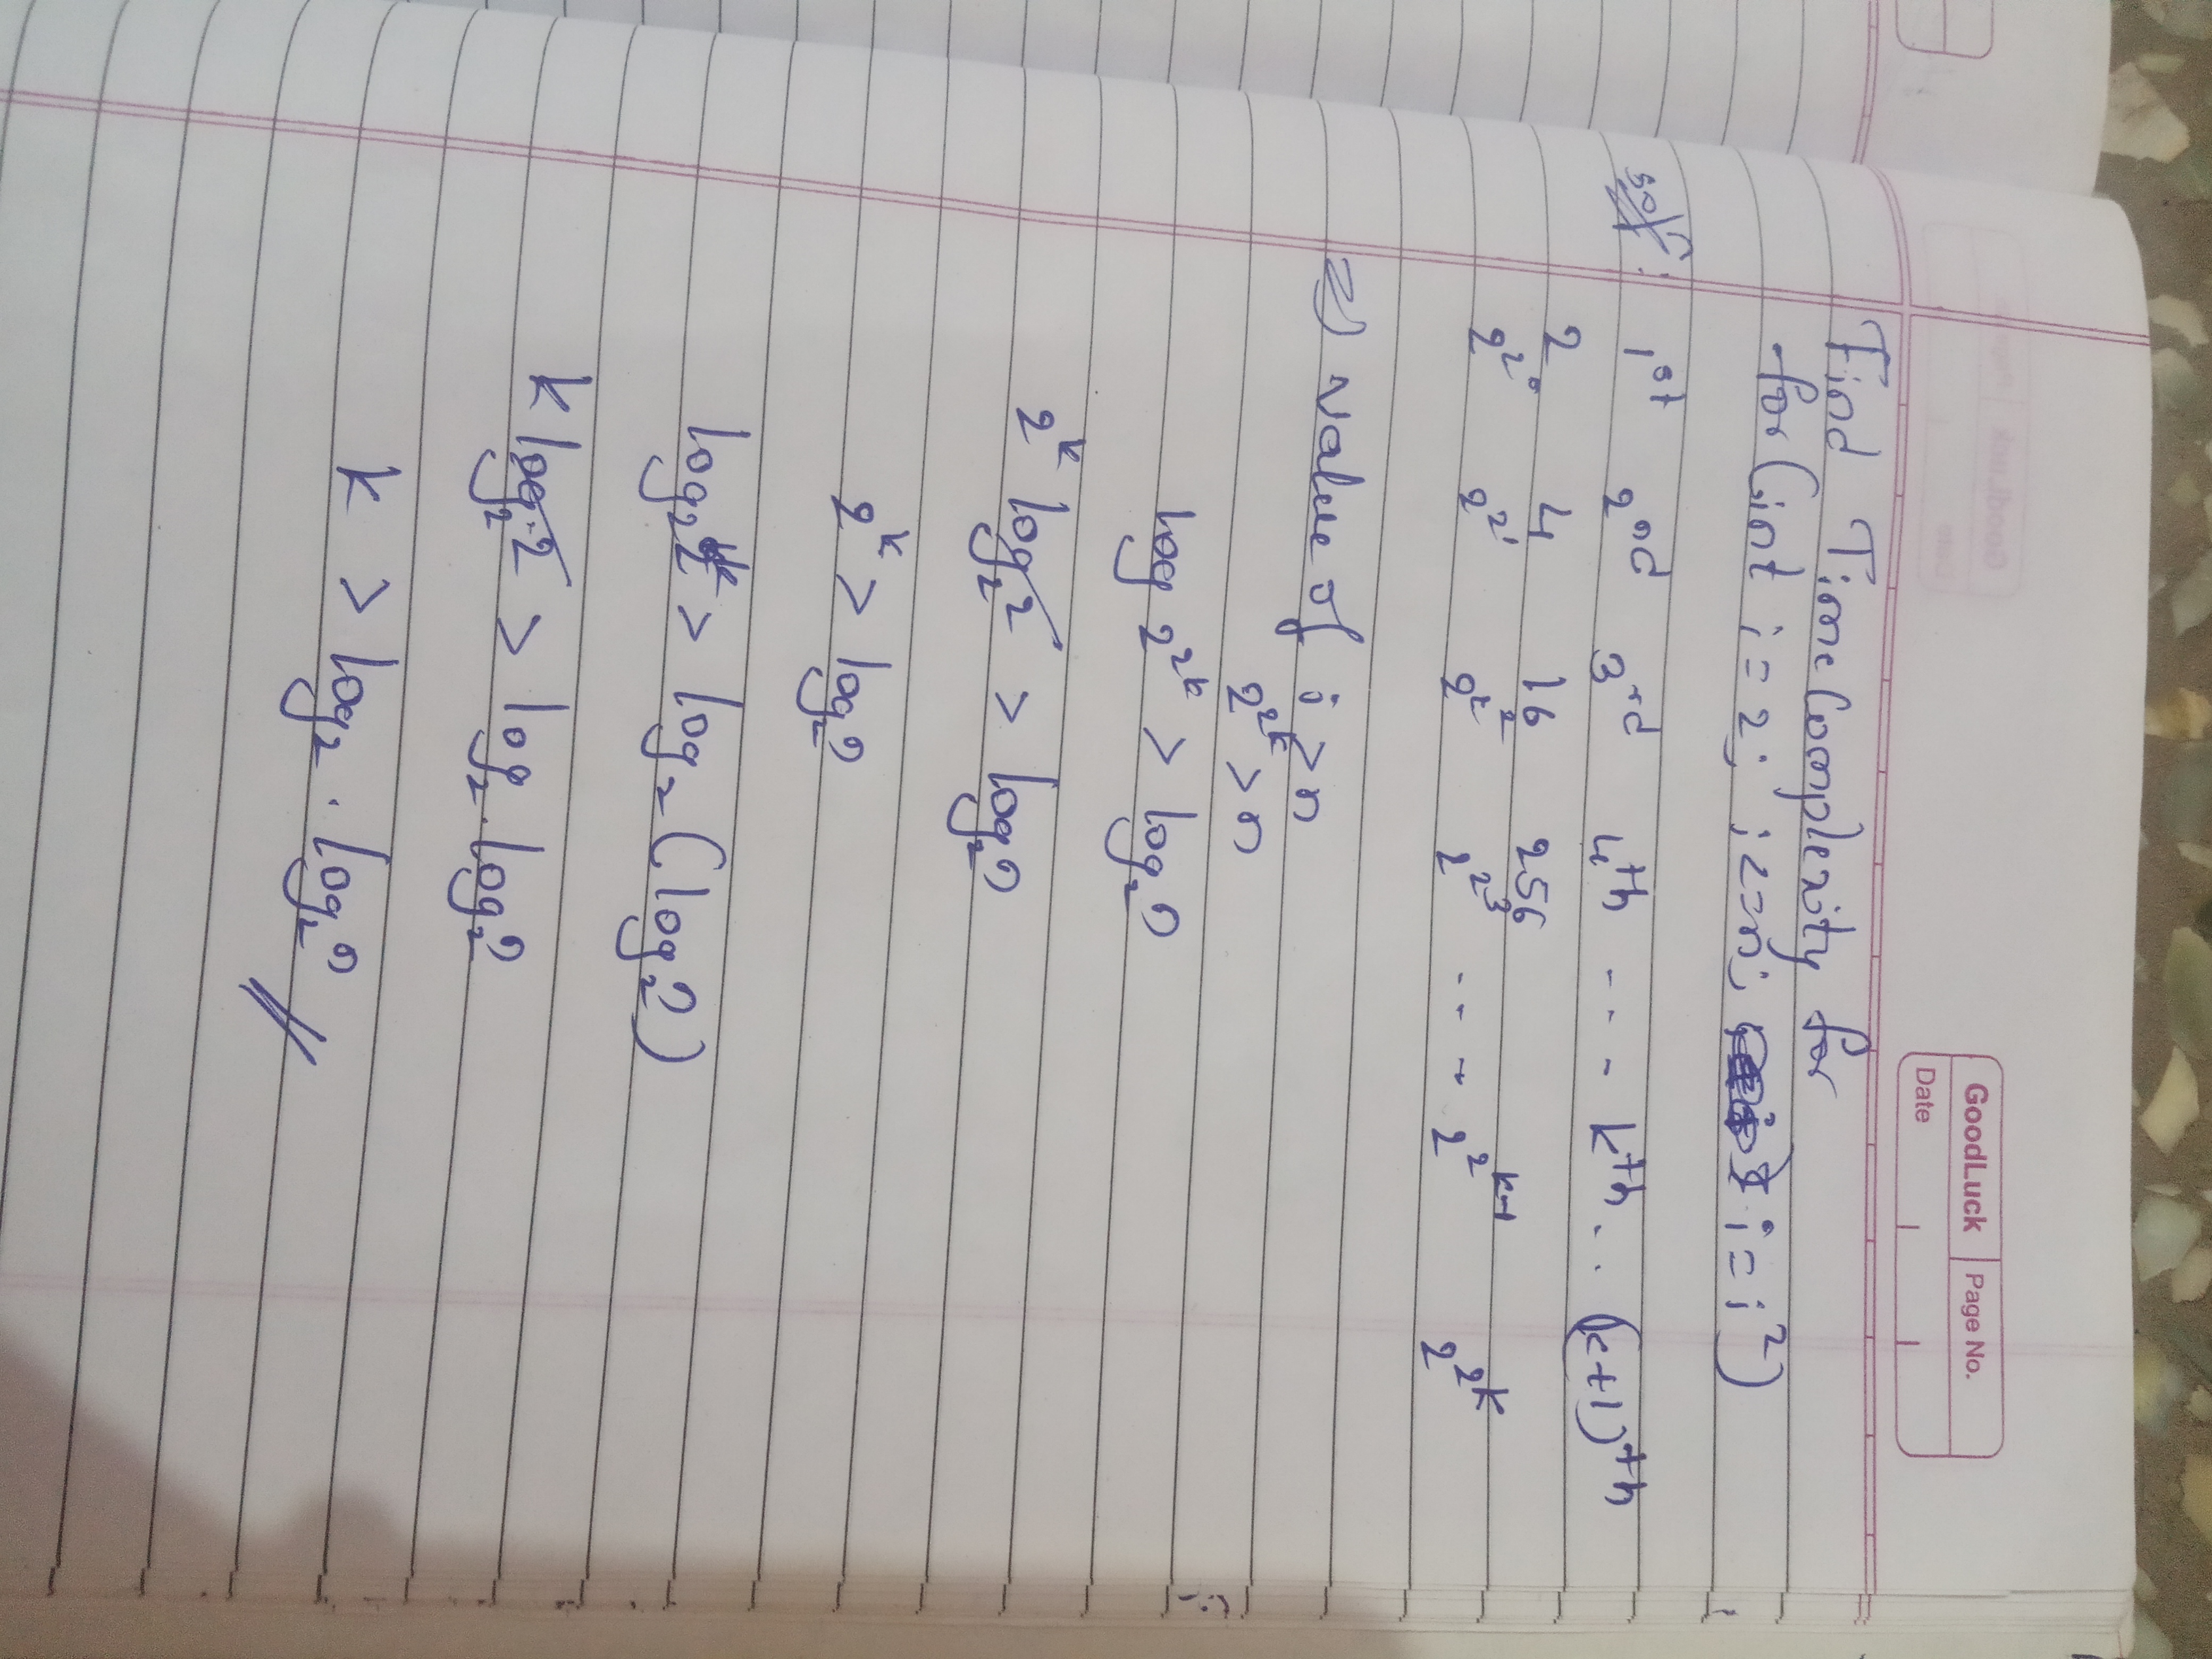 GoodLuck Page No.
Date
Find Time Complexity for
for (int i = 2; i <= n; i = i²)
Sol: 1st 2nd 3rd 4th - - - kth . . (k+1)th
2 4 16 256
2^2^0 2^2^1 2^2^2 2^2^3 - - - - 2^2^k-1 2^2^k
=) value of i > n
2^2^k > n
log 2^2^k > log₂n
2^k log₂2 > log₂n
2^k > log₂n
log₂2^k > log₂(log₂n)
k log₂2 > log₂.log₂n
k > log₂.log₂n //